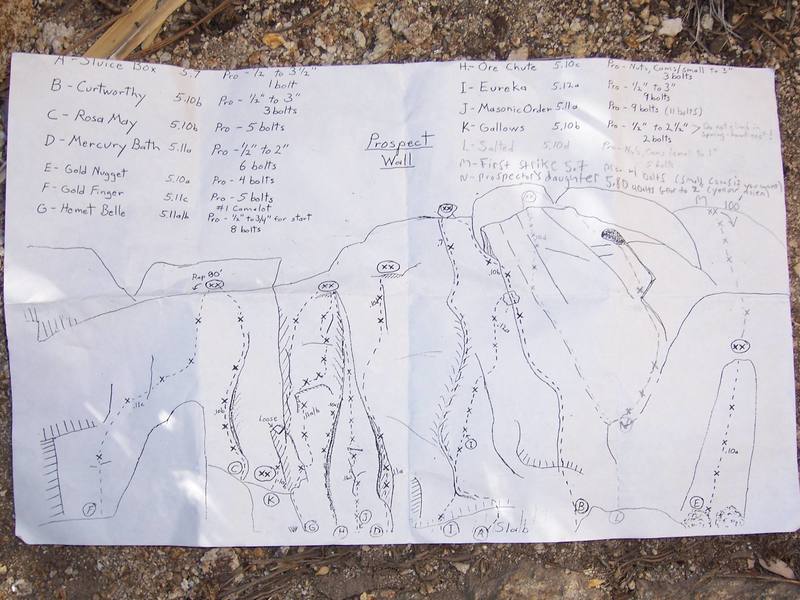 A - Sluice Box 5.7 Pro - 1/2 to 3 1/2"
1 bolt
B - Curtworthy 5.10b Pro - 1/2" to 3"
3 bolts
C - Rosa May 5.10b Pro - 5 bolts
D - Mercury Bath 5.11a Pro - 1/2" to 2"
6 bolts
E - Gold Nugget 5.10a Pro - 4 bolts
F - Gold Finger 5.11c Pro - 5 bolts
#1 Camalot
G - Hemet Belle 5.11a/b Pro - 1/2" to 3/4" for start
8 bolts
Prospect
Wall
H - Ore Chute 5.10c Pro - Nuts, Cams/small to 3"
3 bolts
I - Eureka 5.12a Pro - 1/2" to 3"
9 bolts
J - Masonic Order 5.11a Pro - 9 bolts (11 bolts)
K - Gallows 5.10b Pro - 1/2" to 2 1/2" > Do not climb in
2 bolts
L - Salted 5.10d Pro - Nuts, Cams small to 1"
5 bolts
M - First Strike 5.7 Pro - 4 bolts
N - Prospector's daughter 5.8
M 100'
Rap 90'
xx
xx
xx
xx
xx
xx
xx
J
.10d
.10b
.11c
.10b
Loose
.11a/b
.11a
.10a
C
K
F
G
H
J
D
I
A
Slab
B
L
E